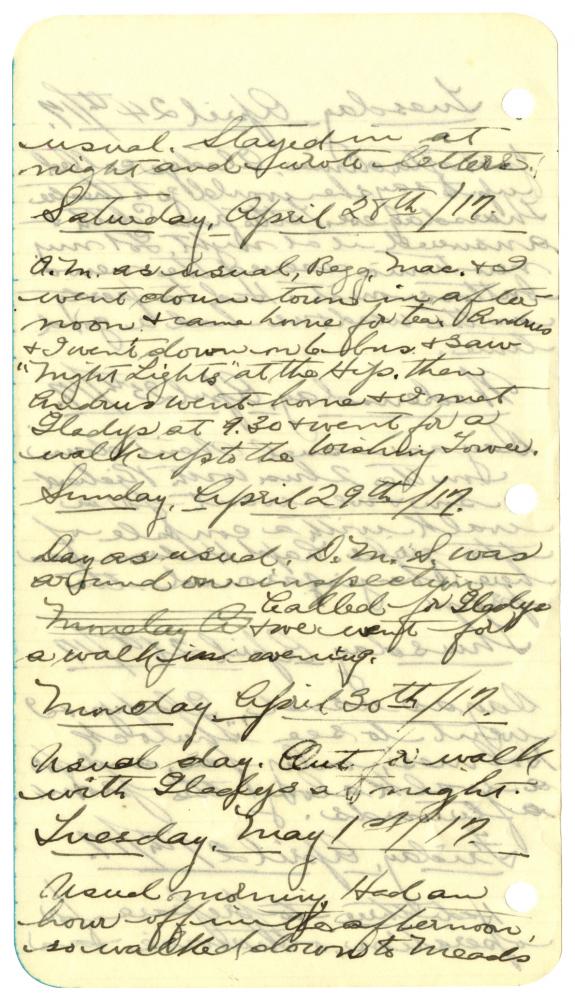 usual. Stayed in at
night and wrote letters.
Saturday, April 28th/17.
A.M. as usual, Begg, Mac. & I
went down town in after-
noon & came home for tea. Andrus
& I went down on 6 bus & saw
"Night Lights" at the Hip. then
Andrus went home & I met
Gladys at 9.30 & went for a
walk up to the Wishing Tower.
Sunday, April 29th/17.
Day as usual. D.M.S. was
around on inspection.
Called for Gladys
Monday A & we went for
a walk in evening.
Monday, April 30th/17.
Usual day. Out for walk
with Gladys at night.
Tuesday, May 1st/17.
Usual morning. Had an
hour off in the afternoon,
so walked down to Meads